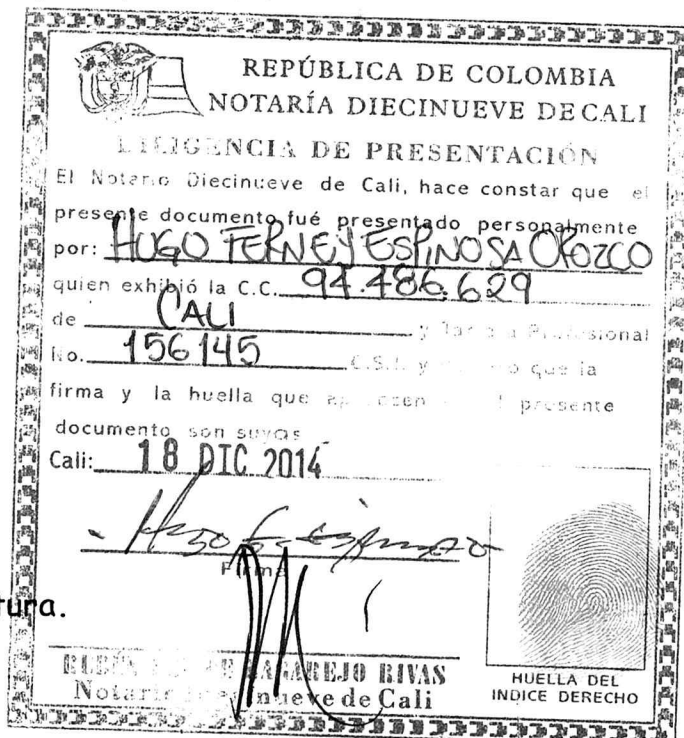 REPÚBLICA DE COLOMBIA
NOTARÍA DIECINUEVE DE CALI
DILIGENCIA DE PRESENTACIÓN
El Notario Diecinueve de Cali, hace constar que el
presente documento fué presentado personalmente
por: HUGO FERNEY ESPINOSA OROZCO
quien exhibió la C.C. 94.486.629
de CALI y Tarjeta Profesional
No. 156145 C.S.J. y que la
firma y la huella que aparecen presente
documento son suyas
Cali: 18 DIC 2014
Firma
tura.
RIVAS
Notario Diecinueve de Cali
HUELLA DEL
INDICE DERECHO